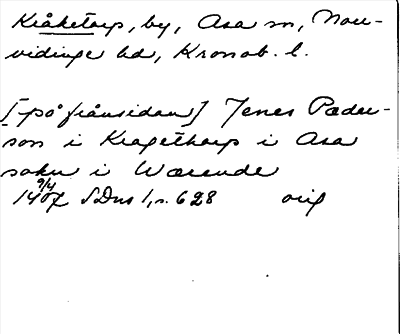 Kråketorp, by, Asa sn, Norr-
vidinge hd, Kronob. l.
[på frånsidan] Jenes Pæder-
son i Kragethorp i Asa
sokn i Wærende
9/4
1407 SDns 1, s. 628 orig